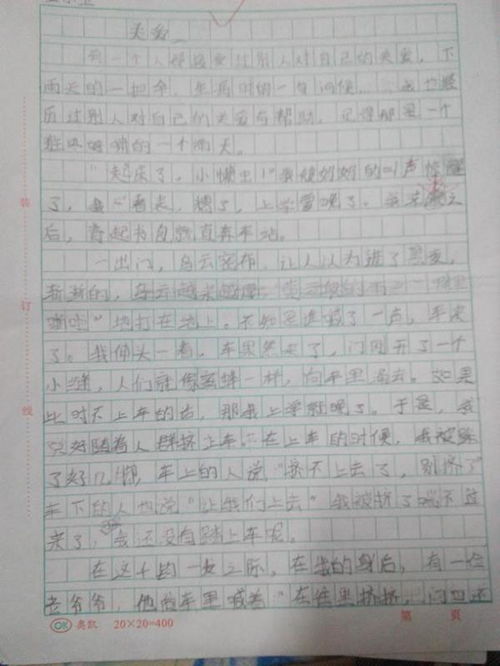 关爱
每一个人都感受过别人对自己的关爱,下
雨天的一把伞,生病时的一句问候,……我也经
历过别人对自己的关爱与帮助,记得那是一个
的一个雨天。
“起床了,小懒虫!”我被妈妈的叫声惊醒
了,一看表,糟了,上学要晚了。
后,背起书包就直奔车站。
一出门,乌云密布,让人以为进了黑夜,
渐渐的,乌云越来越
啪啦”地打在地上。不知是谁喊了一声,车来
了。我伸头一看,车果然来了,门刚开了一个
小缝,人们就像蜜蜂一样,向车里涌去。如果
此时不上车的话,那我上学就晚了。于是,我
只好随着人群挤上车。在上车的时候,我被踩
了好几脚,车上的人说“挤不上去了,别挤了”
车下的人也说“让我们上去”我被挤了喘不过
来了,我还没有踏上车呢。
在这千钧一发之际,在我的身后,有一位
老爷爷,他向车里喊着“在往里挤挤,门口还
装
订
线
OK 奥凯 20×20=400 第 页